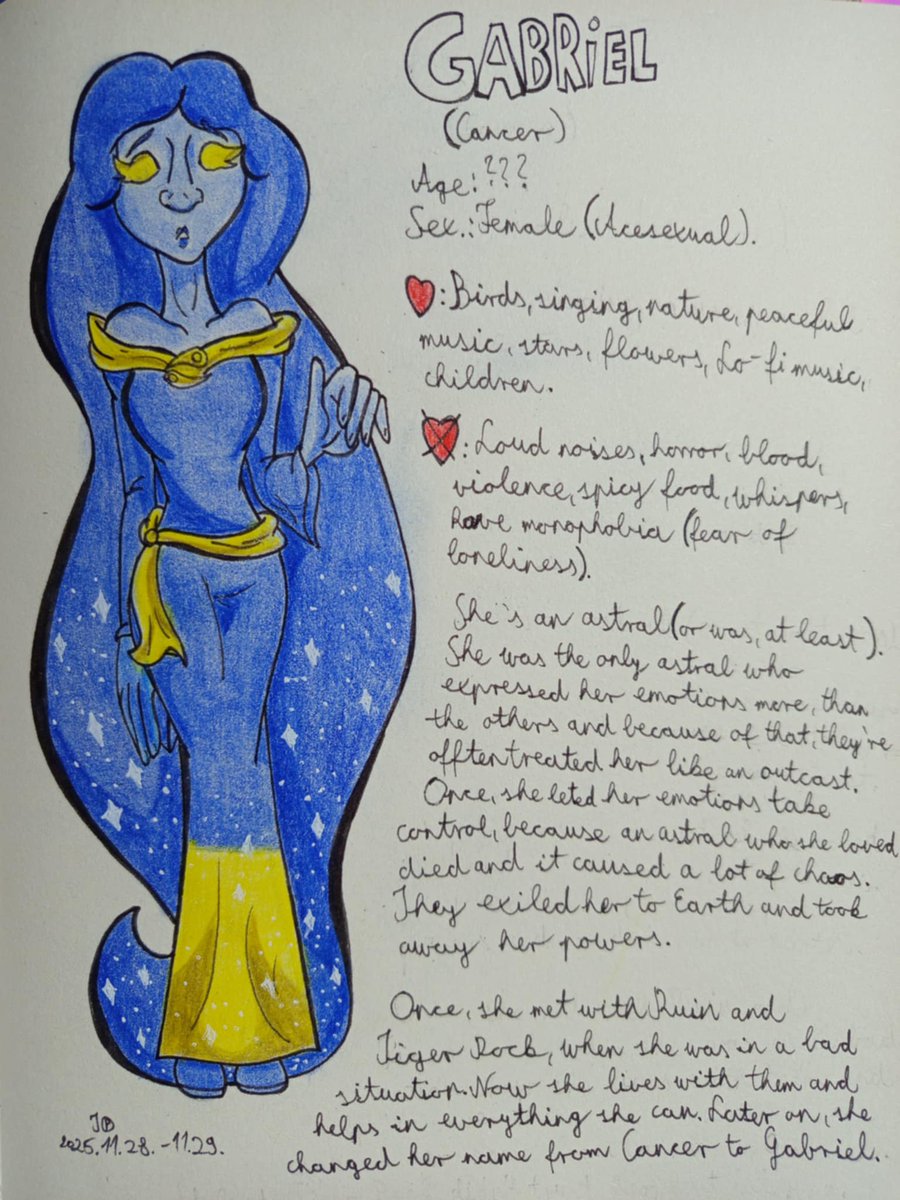 GABRiEL
(Cancer)
Age:???
Sex.:Female (Acesexual).
:Birds, singing, nature, peaceful
music, stars, flowers, Lo-fi music,
children.
:Loud noises, horror, blood,
violence, spicy food, whispers,
have monophobia (fear of
loneliness).
She is an astral (or was, at least).
She was the only astral who
expressed her emotions more, than
the others and because of that, they're
offten treated her like an outcast.
Once, she leted her emotions take
control, because an astral who she loved
died and it caused a lot of chaos.
They exiled her to Earth and took
away her powers.
Once, she met with Ruin and
Tiger Rock, when she was in a bad
situation. Now she lives with them and
helps in everything she can. Later on, she
changed her name from Cancer to Gabriel.
2025.11.28.-11.29.